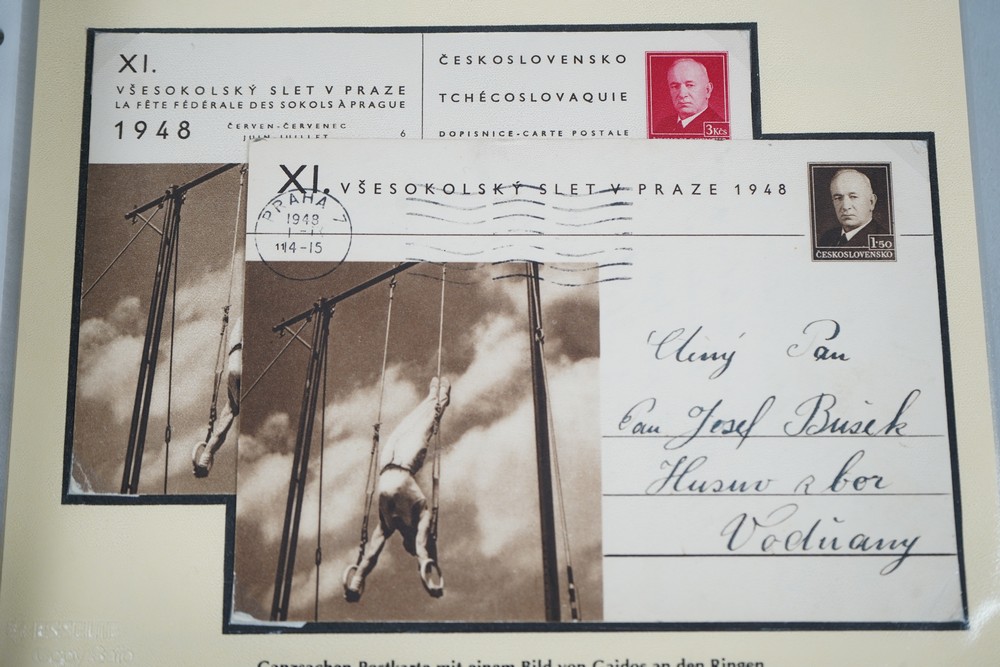 XI.
VŠESOKOLSKÝ SLET V PRAZE
LA FÊTE FÉDÉRALE DES SOKOLS À PRAGUE
1948 ČERVEN-ČERVENEC
JUIN-JUILLET
6
ČESKOSLOVENSKO
TCHÉCOSLOVAQUIE
DOPISNICE-CARTE POSTALE
3 Kčs
XI. VŠESOKOLSKÝ SLET V PRAZE 1948
PRAHA 7
1948
14-15
1·50
ČESKOSLOVENSKO
Ctěný Pan
Pan Josef Bušek
Husův sbor
Vodňany
Ganzsachen Postkarte mit einem Bild von Gajdos an den Ringen